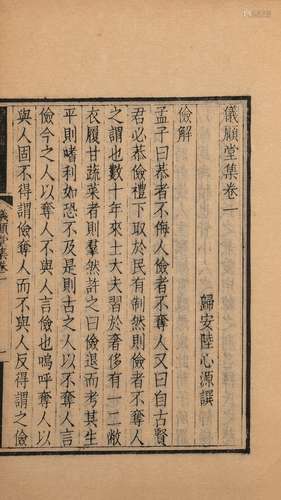 儀顧堂集卷一
歸安陸心源譔
儉解
孟子曰恭者不侮人儉者不奪人又曰自古賢
君必恭儉禮下取於民有制然則儉者不奪人
之謂也數十年來士大夫習於奢侈有一二敝
衣履甘蔬菜者則羣然許之曰儉退而考其生
平則嗜利如恐不及是則古之人以不奪人言
儉今之人以奪人不與人言儉也嗚呼奪人以
與人固不得謂儉奪人而不與人反得謂之儉
儀顧堂集卷一
一